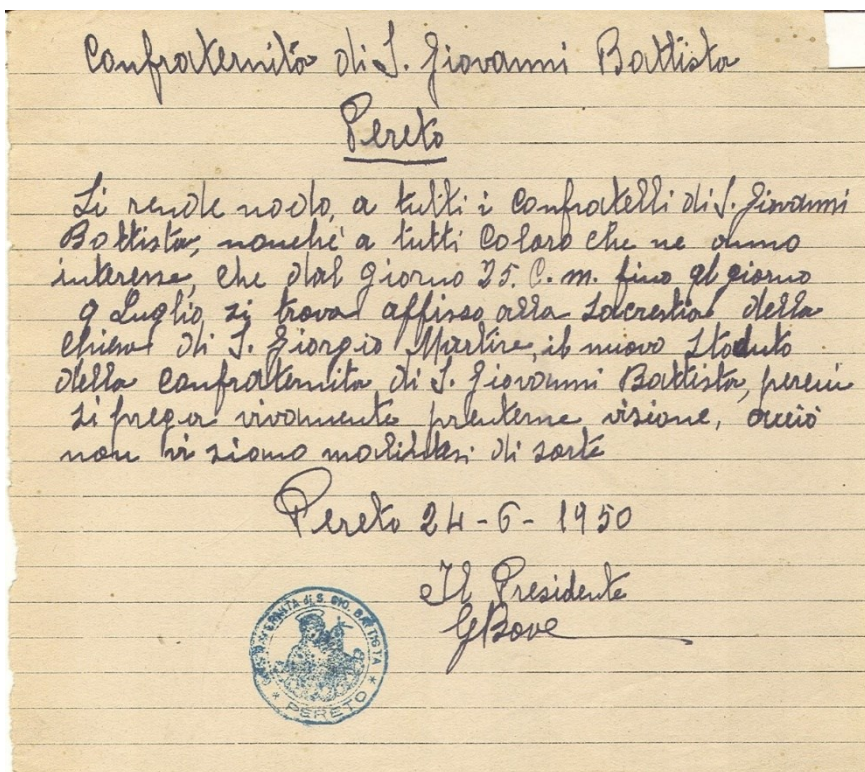 Confraternità di S. Giovanni Battista
Pereto
Si rende nodo, a tutti i Confratelli di S. Giovanni
Battista, nonché a tutti Coloro che ne anno
interesse, che dal giorno 25. C. m. fino al giorno
9 Luglio si trova affisso alla Sacrestia della
chiesa di S. Giorgio Martire, il nuovo Statuto
della Confraternita di S. Giovanni Battista,
si prega vivamente prenterne visione, acciò
non vi siano di sorte
Pereto 24-6-1950
Il Presidente
GBove
CONFRATERNITA di S. GIO. BATTISTA
* PERETO *